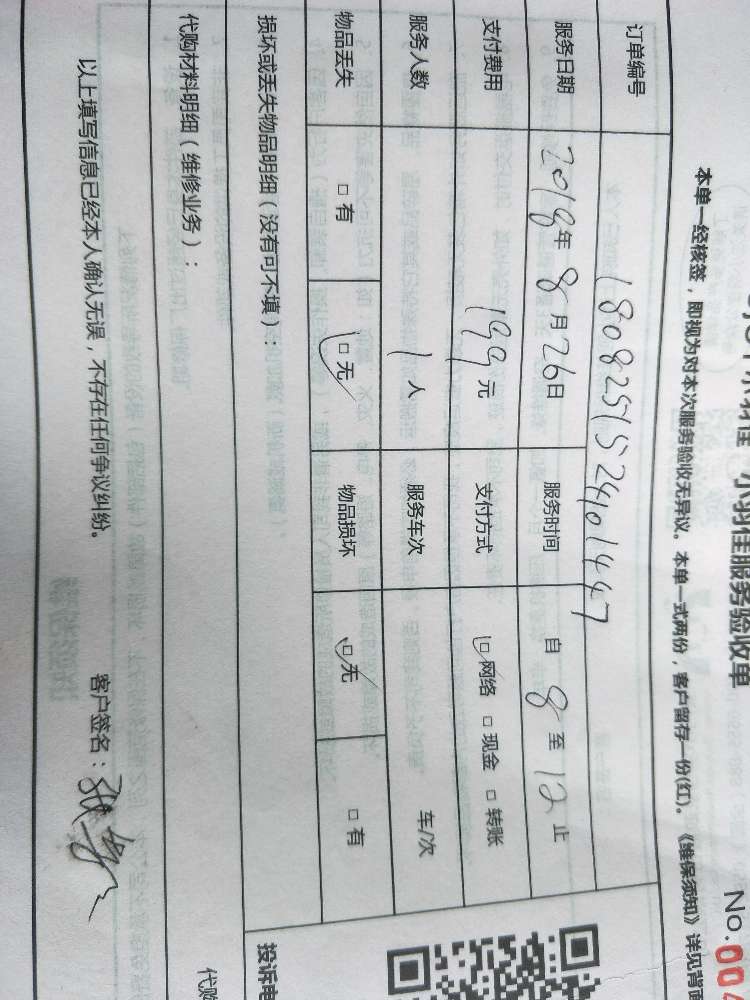 小羽佳服务验收单
No.00
本单一经核签，即视为对本次服务验收无异议。本单一式两份，客户留存一份(红)。《维保须知》详见背面
订单编号 180825152401447
服务日期 2018年8月26日 服务时间 自 8 至 12 止
支付费用 199元 支付方式 □网络 □现金 □转账
服务人数 1人 服务车次 车/次
物品丢失 □有 □无 物品损坏 □无 □有
损坏或丢失物品明细（没有可不填）：
投诉电
代购材料明细（维修业务）：
代购
以上填写信息已经本人确认无误，不存在任何争议纠纷。 客户签名：